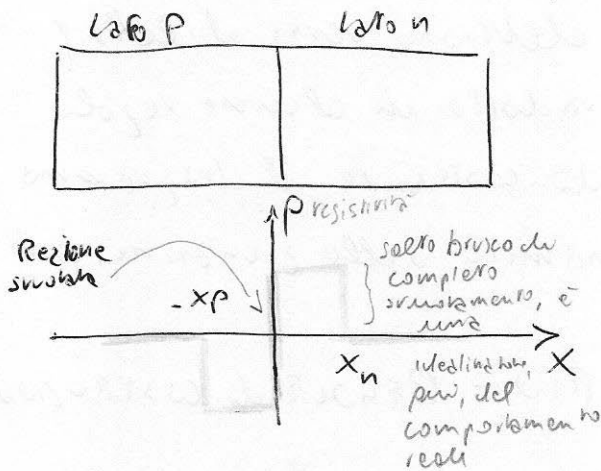 Lato P
Lato n
ρ resistività
Regione
svuotata
-xp
salto brusco di
completo
svuotamento, è
una
xn
x
idealizzazione,
però, del
comportamento
reale